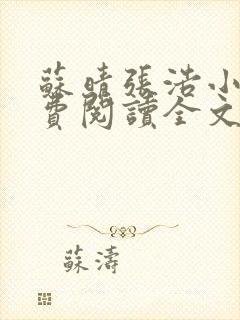 蘇晴張浩小
費閱讀全文
蘇濤